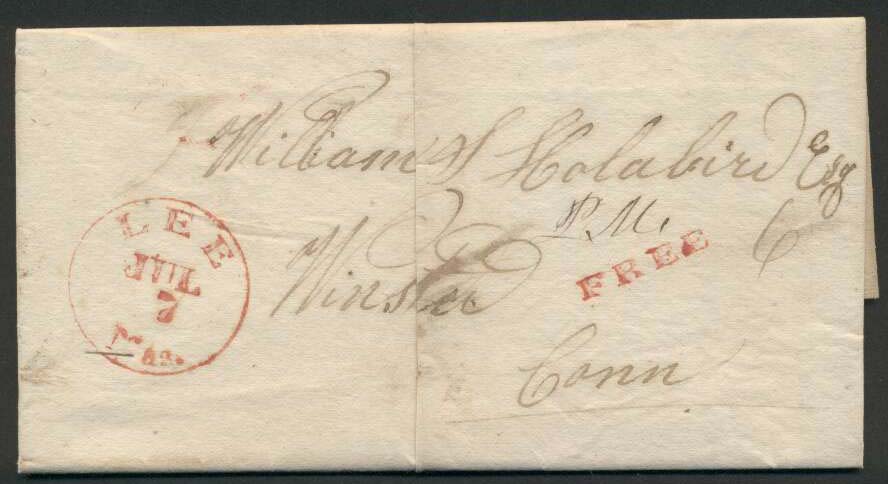 William S Holabird Esq
P.M.
Winsted
Conn
6
FREE
LEE
JUL
7
Mas.